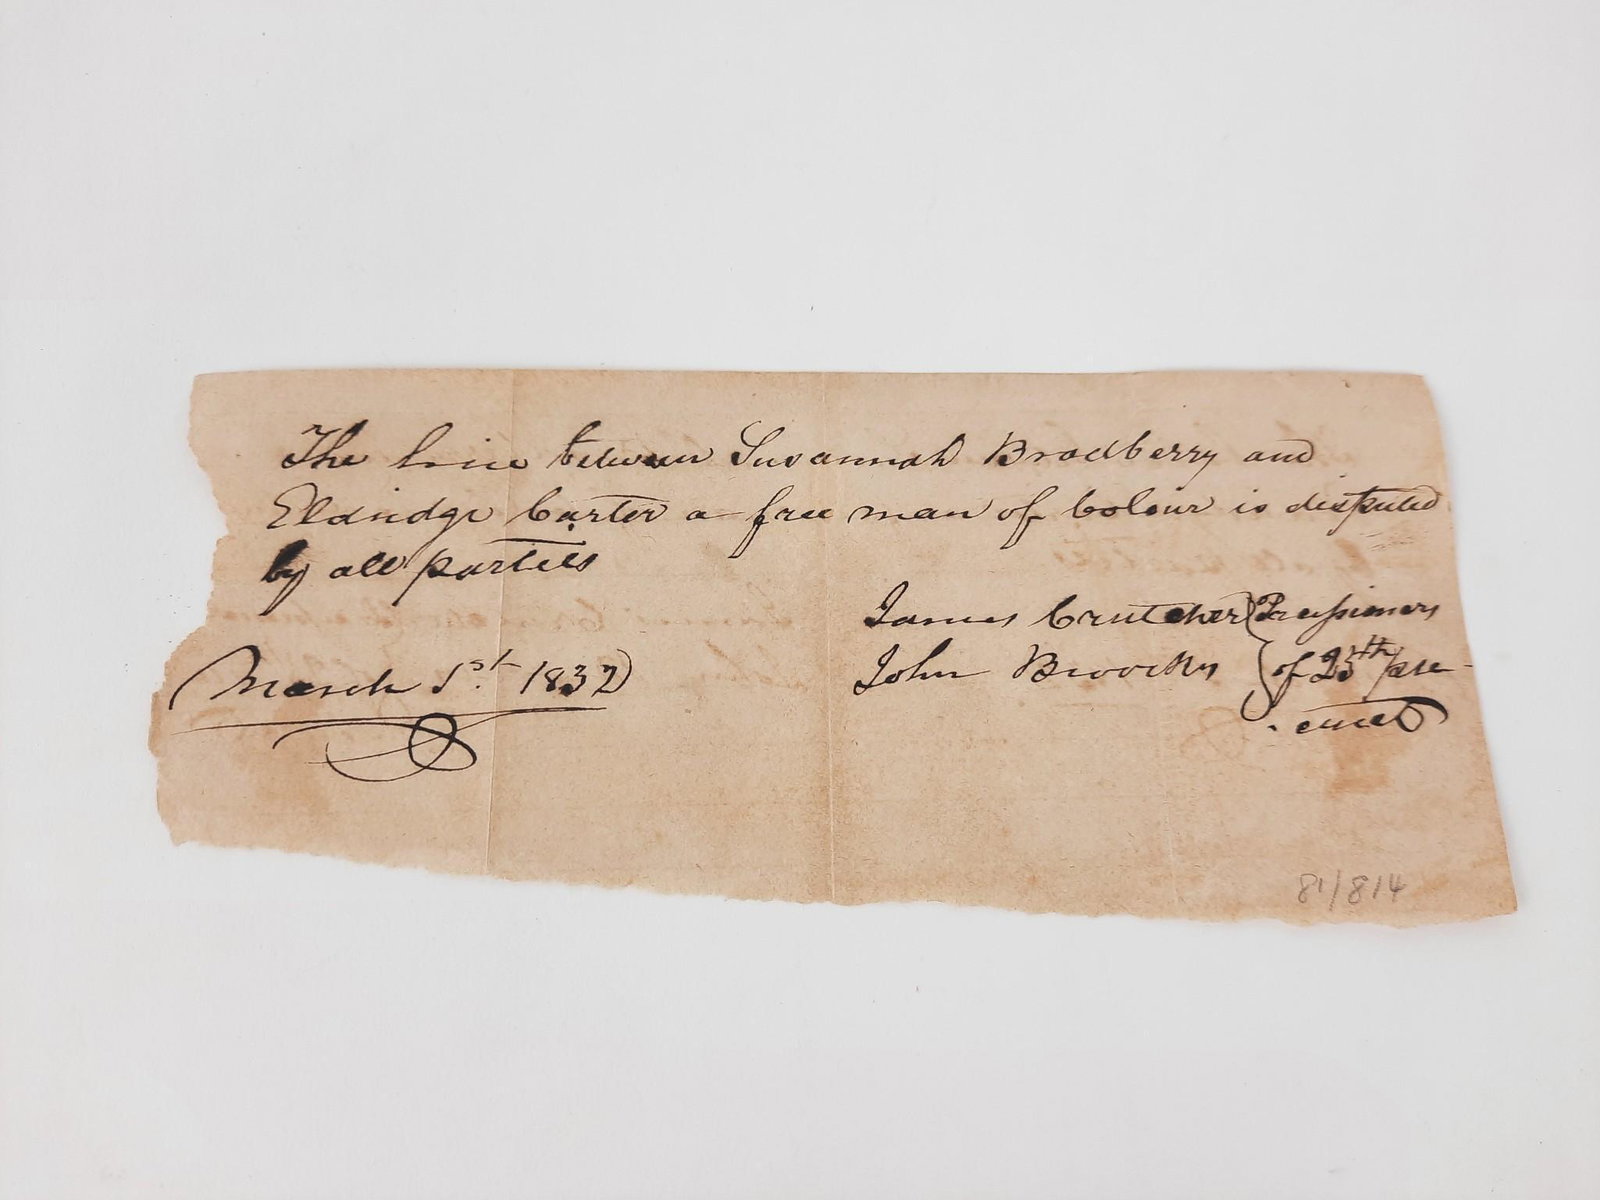 The line between Susannah Bradberry and
Eldridge Carter a free man of Colour is disputed
by all parties
James Crutcher } Prosessioners
John Broocks } of 25th pre-
cinct
March 1st. 1832
81/814